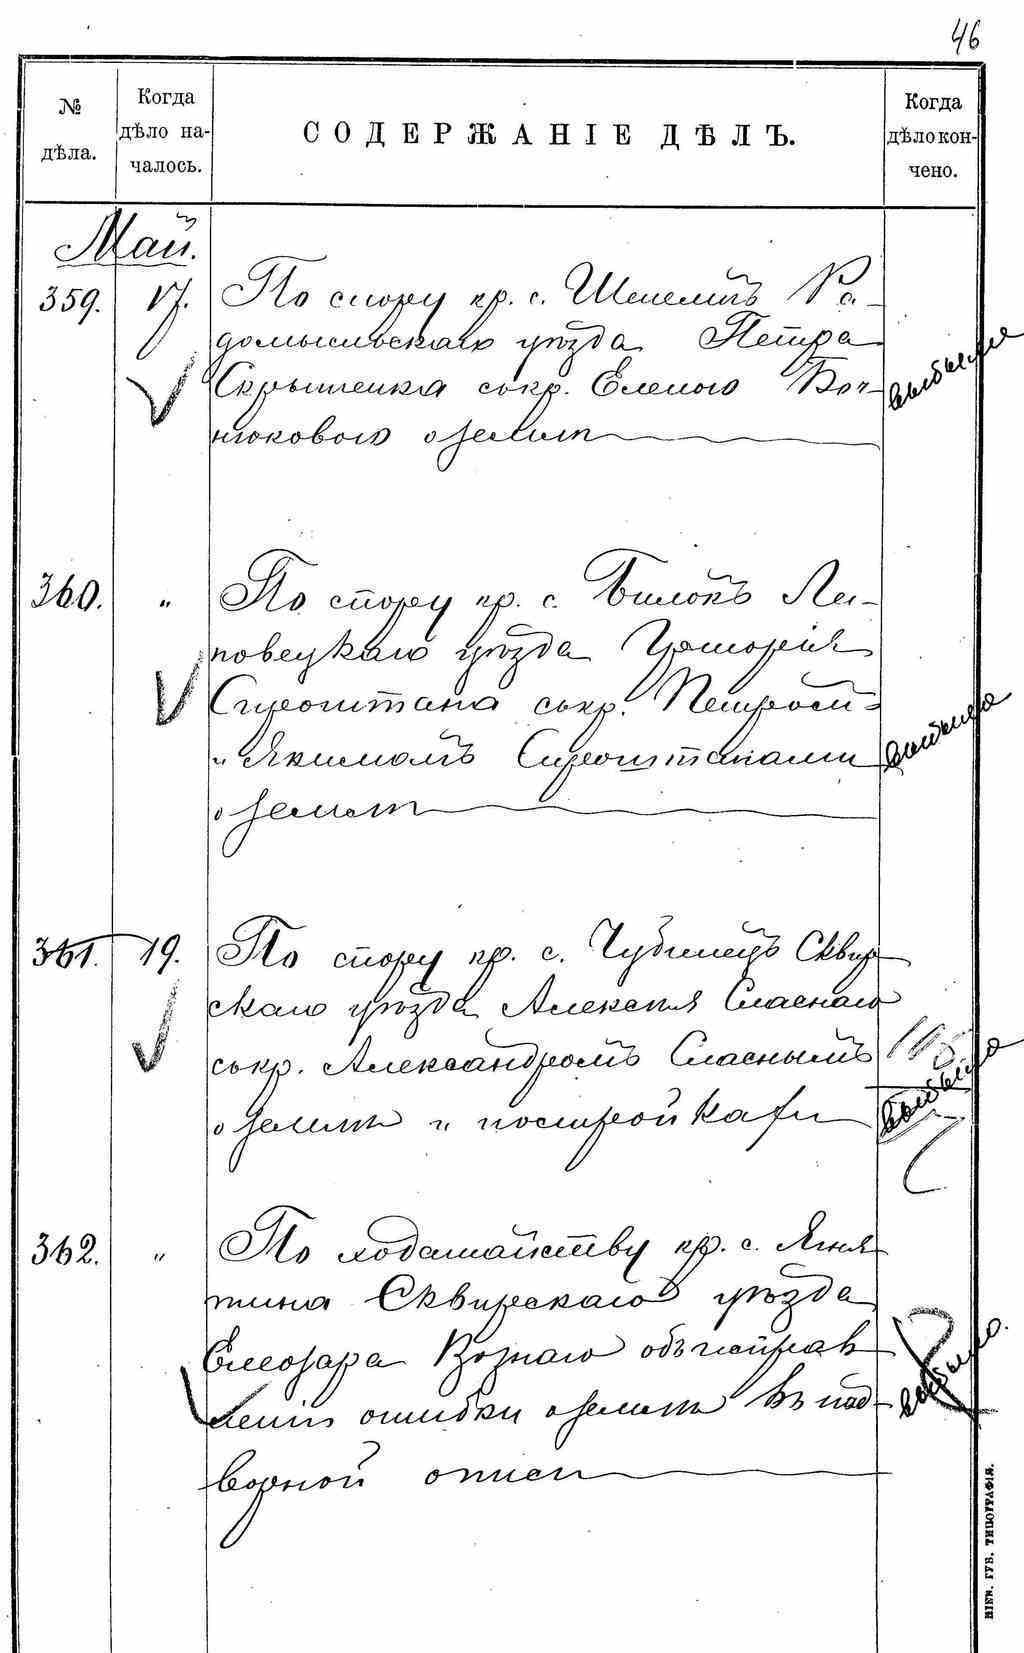 46
№ дѣла.
Когда дѣло на-
чалось.
СОДЕРЖАНІЕ ДѢЛЪ.
Когда дѣло кон-
чено.
Май.
359. 17. По спору кр. с. Шепеличъ Ра-
домысльскаго уѣзда Петра
Скрыпченка съ кр. Еленою
нюковою о землѣ
выбыли
360. " По спору кр. с. Билокъ Ли-
повецкаго уѣзда Григорія
Сиропштана съ кр. Петромъ
и Якимомъ Сиропштанами
о землѣ
выбыло
361. 19. По спору кр. с. Чубинецъ Сквир
скаго уѣзда Алексѣя Спаснаго
съ кр. Александромъ Спаснымъ
о землѣ и постройкахъ
выбыло
362. " По ходатайству кр. с. Ягня
тина Сквирскаго уѣзда
Елеозара Вознаго объ исправ
леніи ошибки о землѣ въ под-
ворной описи
выбыло.
КІЕВ. ГУБ. ТИПОГРАФІЯ.